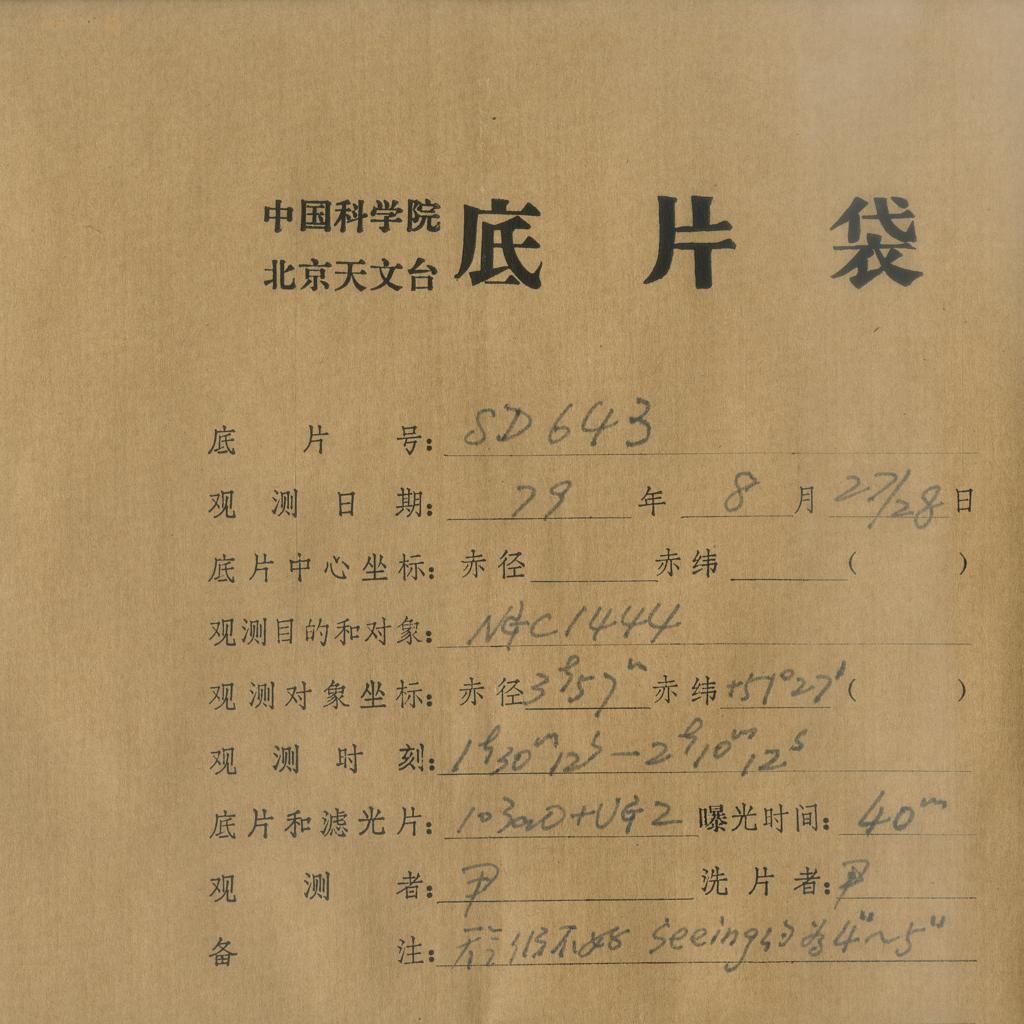 中国科学院
北京天文台
底片袋
底片号: SD643
观测日期: 79年 8月 27/28日
底片中心坐标: 赤径 赤纬 ( )
观测目的和对象: NGC1444
观测对象坐标: 赤径 3h57m 赤纬 +51°27′ ( )
观测时刻: 1h30m12s—2h10m12s
底片和滤光片: 103aO+UG2 曝光时间: 40m
观测者: 尹 洗片者: 尹
备注: 不好 seeing 约为4"~5"